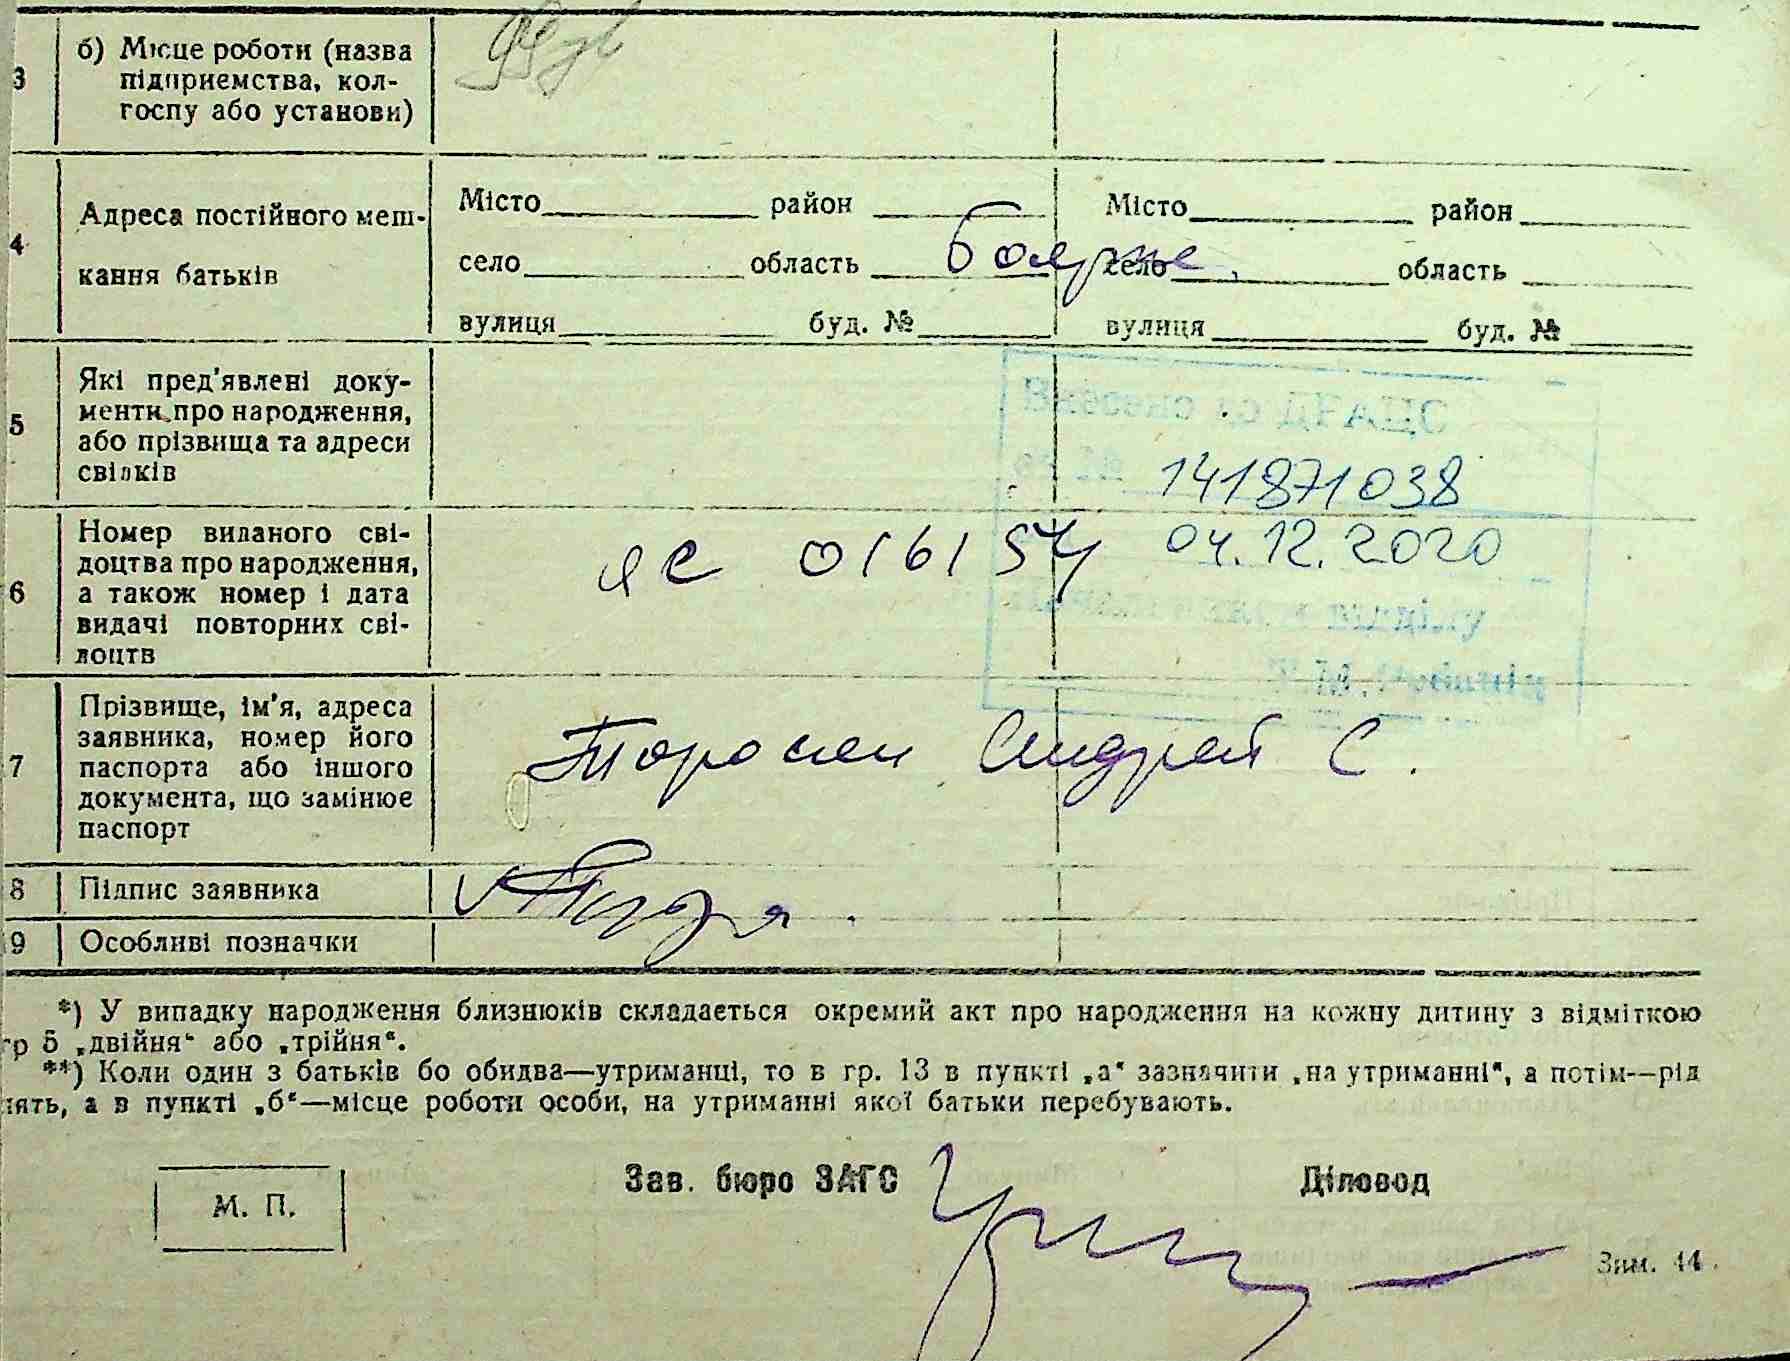 3 б) Місце роботи (назва
підприємства, кол-
госпу або установи)
4 Адреса постійного меш-
кання батьків
Місто район
село область
вулиця буд. №
Місто район
село область
вулиця буд. №
Боярка
5 Які пред'явлені доку-
менти про народження,
або прізвища та адреси
свідків
Внесено до ДРАЦС
141871038
04.12.2020
відділу
6 Номер виданого сві-
доцтва про народження,
а також номер і дата
видачі повторних сві-
доцтв
ЯС 016154
7 Прізвище, ім'я, адреса
заявника, номер його
паспорта або іншого
документа, що замінює
паспорт
Андрей С.
8 Підпис заявника
9 Особливі позначки
*) У випадку народження близнюків складається окремий акт про народження на кожну дитину з відміткою
гр 5 „двійня“ або „трійня“.
**) Коли один з батьків бо обидва—утриманці, то в гр. 13 в пункті „а“ зазначити „на утриманні“, а потім—рід
нять, а в пункті „б“—місце роботи особи, на утриманні якої батьки перебувають.
М. П.
Зав. бюро ЗАГС
Діловод
Зим. 44.